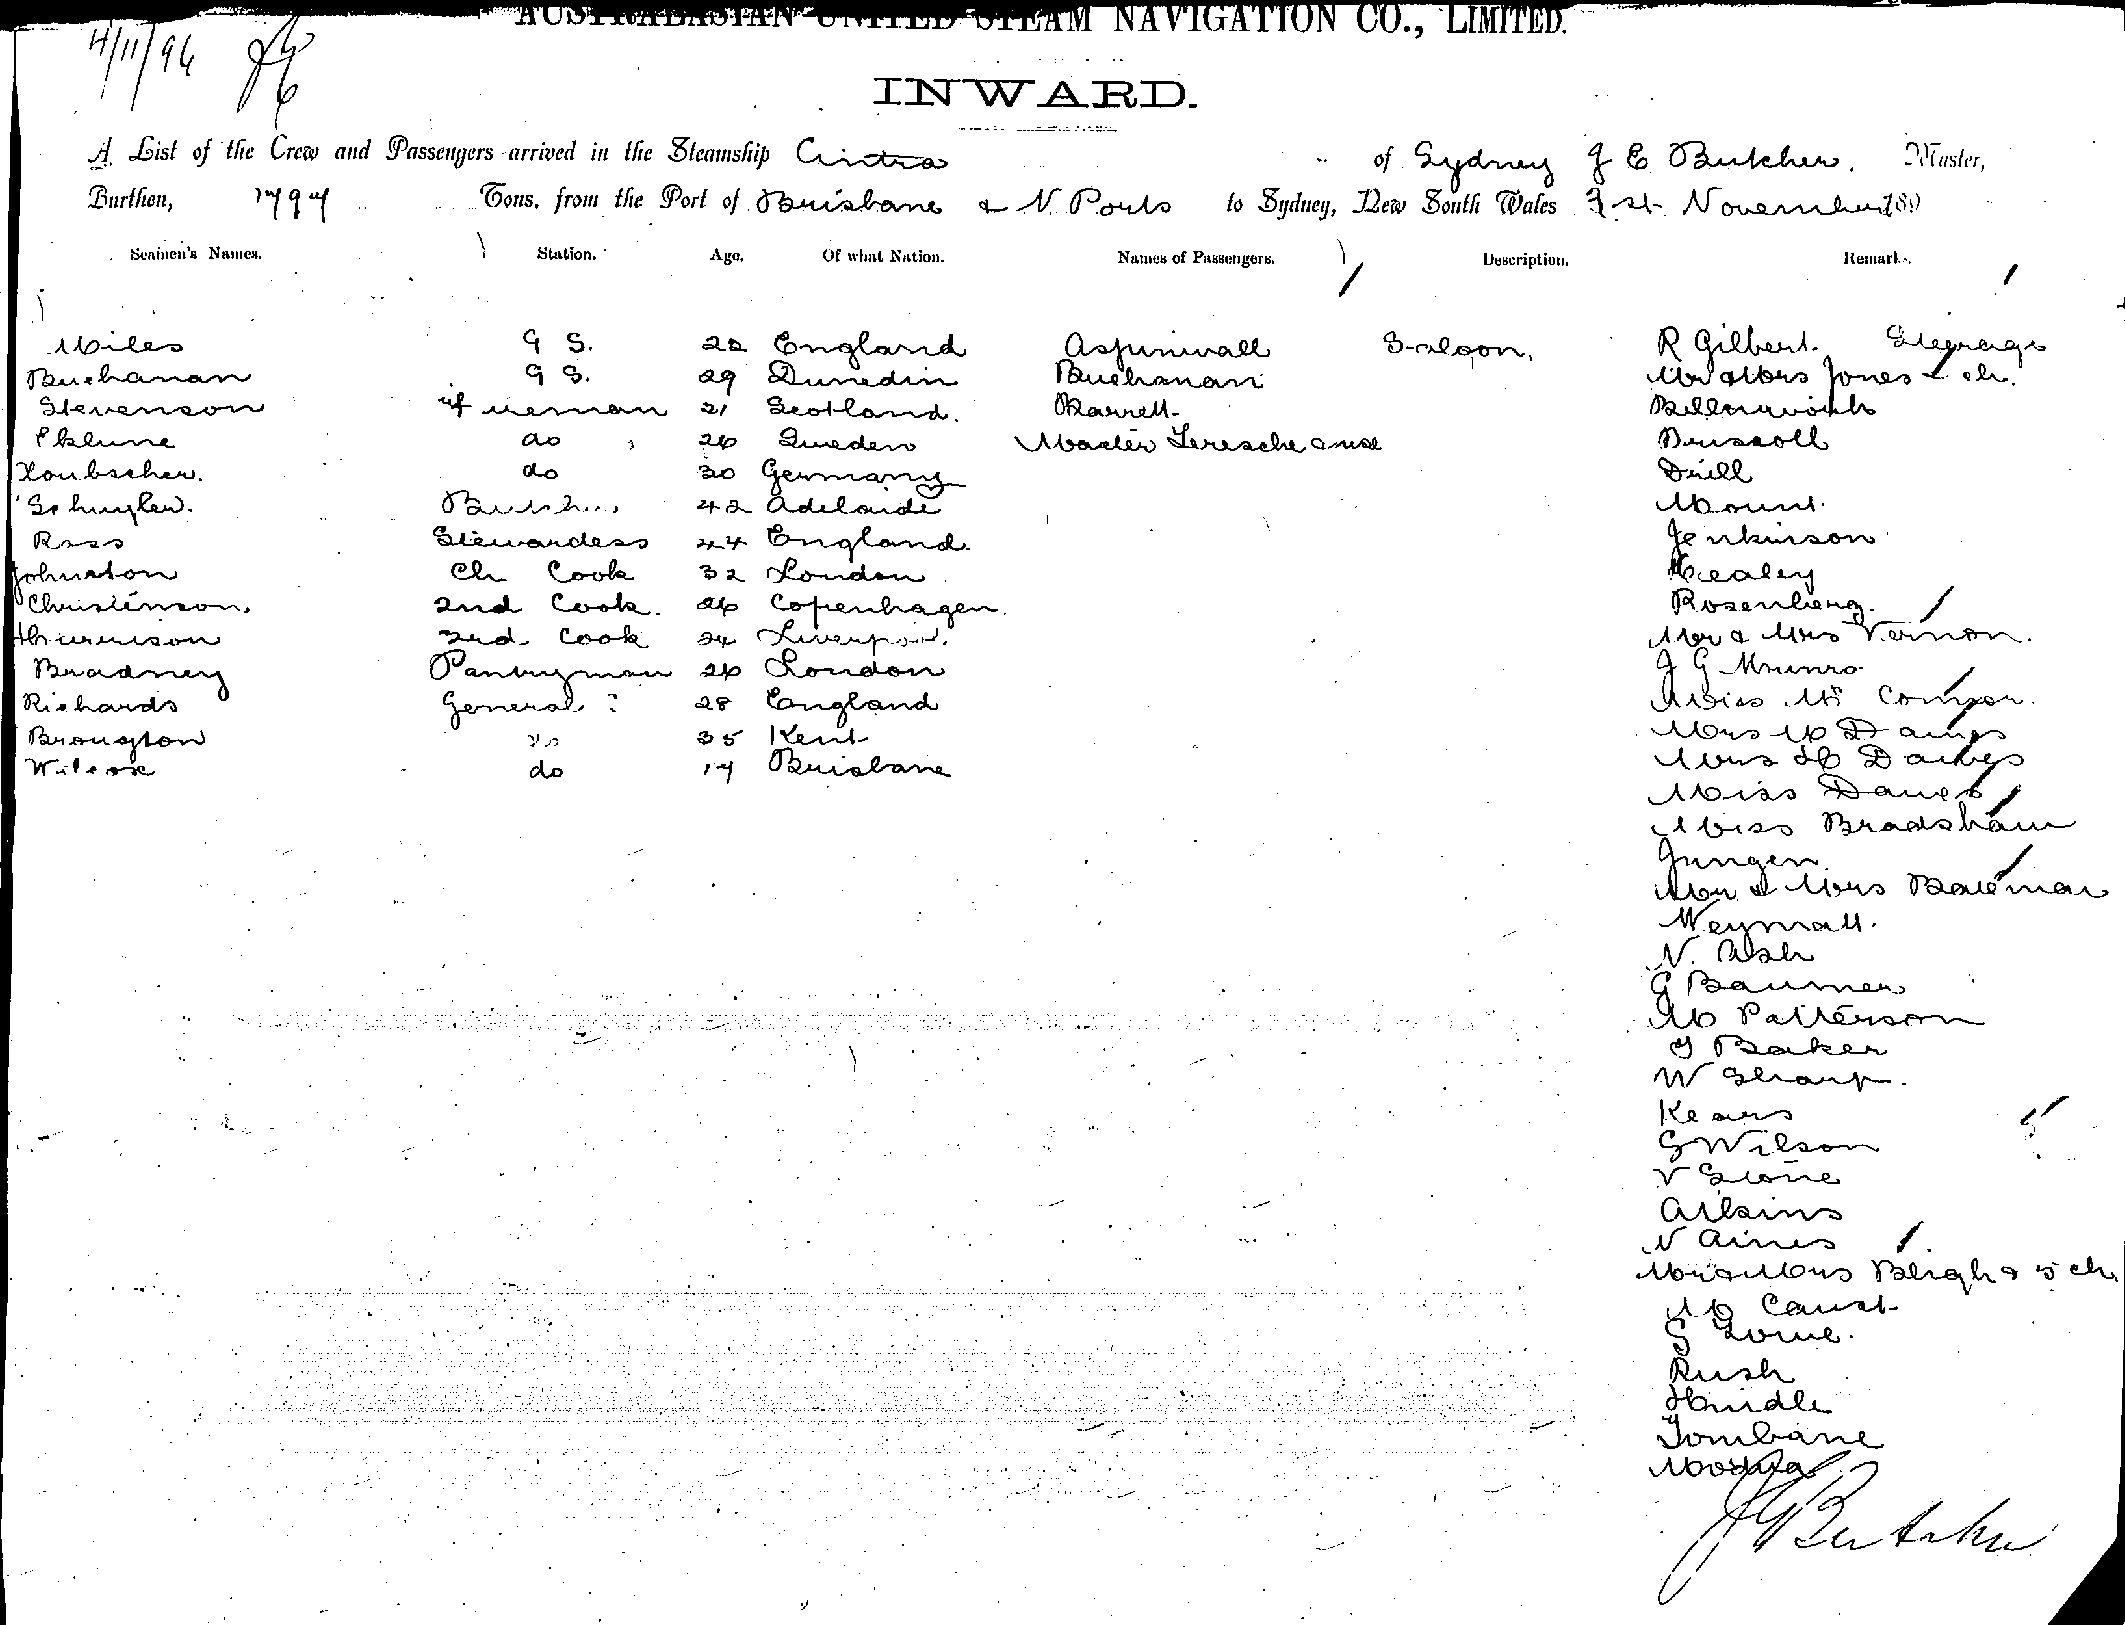 AUSTRALASIAN UNITED STEAM NAVIGATION CO., LIMITED.
4/11/96
INWARD.
A List of the Crew and Passengers arrived in the Steamship Cintra of Sydney J E Butcher, Master,
Burthen, 1797 Tons, from the Port of Brisbane & N. Ports to Sydney, New South Wales 1st November 189
Seamen's Names. Station. Age. Of what Nation. Names of Passengers. Description. Remarks.
Miles G S. 22 England Aspinwall Saloon. R Gilbert. Steerage
Buchanan G S. 29 Dunedin Buchanan Mr & Mrs Jones & ch.
Stevenson Fireman 21 Scotland. Barrett
Eklune do 26 Sweden Master Leresche & nurse Driscoll
Loubscher. do 30 Germany Drill
Schuyler. 42 Adelaide Mount.
Ross Stewardess 44 England. Jenkinson
Johnston Ch Cook 32 London Healey
Christenson. 2nd Cook. 26 Copenhagen. Rosenberg.
3rd Cook 24 Liverpool. Mr & Mrs Vernon.
Bradney Pantryman 26 London J G Munro
Richards General 28 England Miss
Brougton do 35 Kent Mrs M Dawes
Wilcox do 17 Brisbane Mrs H Dawes
Miss Dawes
Miss Bradshaw
Jungen
Mr & Mrs Bateman
Weymatt.
N. Ash
G Baumer
M Patterson
J Baker
W Sharp.
Kears
G Wilson
V Stone
Atkins
N Aines
Mr & Mrs Bligh & 5 ch.
M Caust
G Lowe.
Rush
Hindle
Tombane
J E Butcher